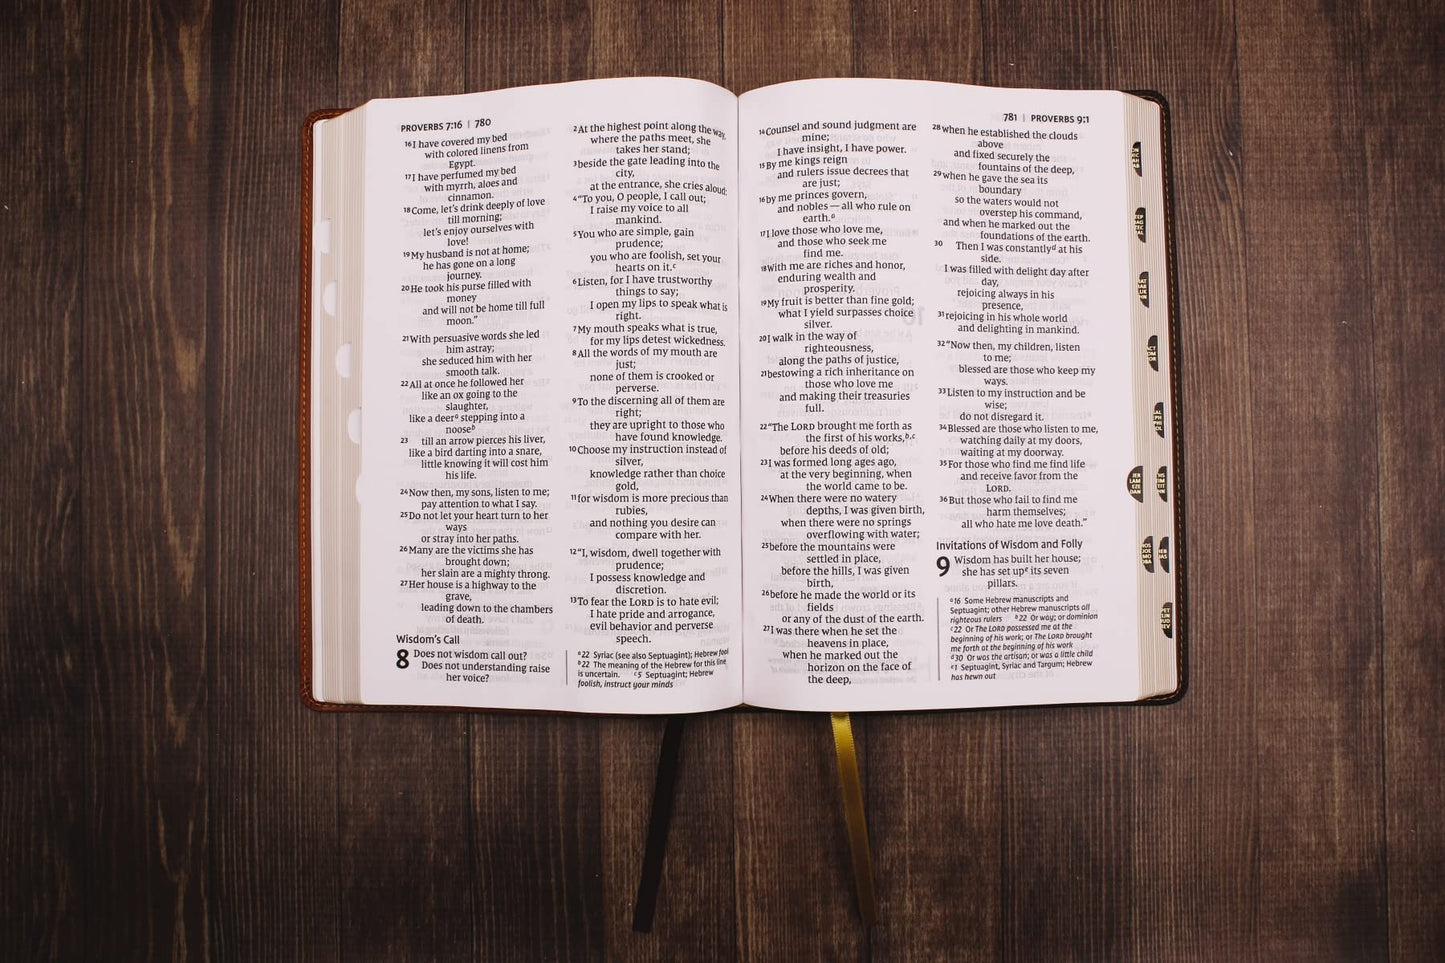 PROVERBS 7:16 | 780
16 I have covered my bed
with colored linens from
Egypt.
17 I have perfumed my bed
with myrrh, aloes and
cinnamon.
18 Come, let's drink deeply of love
till morning;
let's enjoy ourselves with
love!
19 My husband is not at home;
he has gone on a long
journey.
20 He took his purse filled with
money
and will not be home till full
moon."
21 With persuasive words she led
him astray;
she seduced him with her
smooth talk.
22 All at once he followed her
like an ox going to the
slaughter,
like a deer a stepping into a
noose b
23 till an arrow pierces his liver,
like a bird darting into a snare,
little knowing it will cost him
his life.
24 Now then, my sons, listen to me;
pay attention to what I say.
25 Do not let your heart turn to her
ways
or stray into her paths.
26 Many are the victims she has
brought down;
her slain are a mighty throng.
27 Her house is a highway to the
grave,
leading down to the chambers
of death.
Wisdom's Call
8 Does not wisdom call out?
Does not understanding raise
her voice?
2 At the highest point along the way,
where the paths meet, she
takes her stand;
3 beside the gate leading into the
city,
at the entrance, she cries aloud:
4 "To you, O people, I call out;
I raise my voice to all
mankind.
5 You who are simple, gain
prudence;
you who are foolish, set your
hearts on it. c
6 Listen, for I have trustworthy
things to say;
I open my lips to speak what is
right.
7 My mouth speaks what is true,
for my lips detest wickedness.
8 All the words of my mouth are
just;
none of them is crooked or
perverse.
9 To the discerning all of them are
right;
they are upright to those who
have found knowledge.
10 Choose my instruction instead of
silver,
knowledge rather than choice
gold,
11 for wisdom is more precious than
rubies,
and nothing you desire can
compare with her.
12 "I, wisdom, dwell together with
prudence;
I possess knowledge and
discretion.
13 To fear the LORD is to hate evil;
I hate pride and arrogance,
evil behavior and perverse
speech.
a 22 Syriac (see also Septuagint); Hebrew fool
b 22 The meaning of the Hebrew for this line
is uncertain. c 5 Septuagint; Hebrew
foolish, instruct your minds
781 | PROVERBS 9:1
14 Counsel and sound judgment are
mine;
I have insight, I have power.
15 By me kings reign
and rulers issue decrees that
are just;
16 by me princes govern,
and nobles — all who rule on
earth. a
17 I love those who love me,
and those who seek me
find me.
18 With me are riches and honor,
enduring wealth and
prosperity.
19 My fruit is better than fine gold;
what I yield surpasses choice
silver.
20 I walk in the way of
righteousness,
along the paths of justice,
21 bestowing a rich inheritance on
those who love me
and making their treasuries
full.
22 "The LORD brought me forth as
the first of his works, b,c
before his deeds of old;
23 I was formed long ages ago,
at the very beginning, when
the world came to be.
24 When there were no watery
depths, I was given birth,
when there were no springs
overflowing with water;
25 before the mountains were
settled in place,
before the hills, I was given
birth,
26 before he made the world or its
fields
or any of the dust of the earth.
27 I was there when he set the
heavens in place,
when he marked out the
horizon on the face of
the deep,
28 when he established the clouds
above
and fixed securely the
fountains of the deep,
29 when he gave the sea its
boundary
so the waters would not
overstep his command,
and when he marked out the
foundations of the earth.
30 Then I was constantly d at his
side.
I was filled with delight day after
day,
rejoicing always in his
presence,
31 rejoicing in his whole world
and delighting in mankind.
32 "Now then, my children, listen
to me;
blessed are those who keep my
ways.
33 Listen to my instruction and be
wise;
do not disregard it.
34 Blessed are those who listen to me,
watching daily at my doors,
waiting at my doorway.
35 For those who find me find life
and receive favor from the
LORD.
36 But those who fail to find me
harm themselves;
all who hate me love death."
Invitations of Wisdom and Folly
9 Wisdom has built her house;
she has set up e its seven
pillars.
a 16 Some Hebrew manuscripts and
Septuagint; other Hebrew manuscripts all
righteous rulers b 22 Or way; or dominion
c 22 Or The LORD possessed me at the
beginning of his work; or The LORD brought
me forth at the beginning of his work
d 30 Or was the artisan; or was a little child
e 1 Septuagint, Syriac and Targum; Hebrew
has hewn out
JER
LAM
EZE
DAN